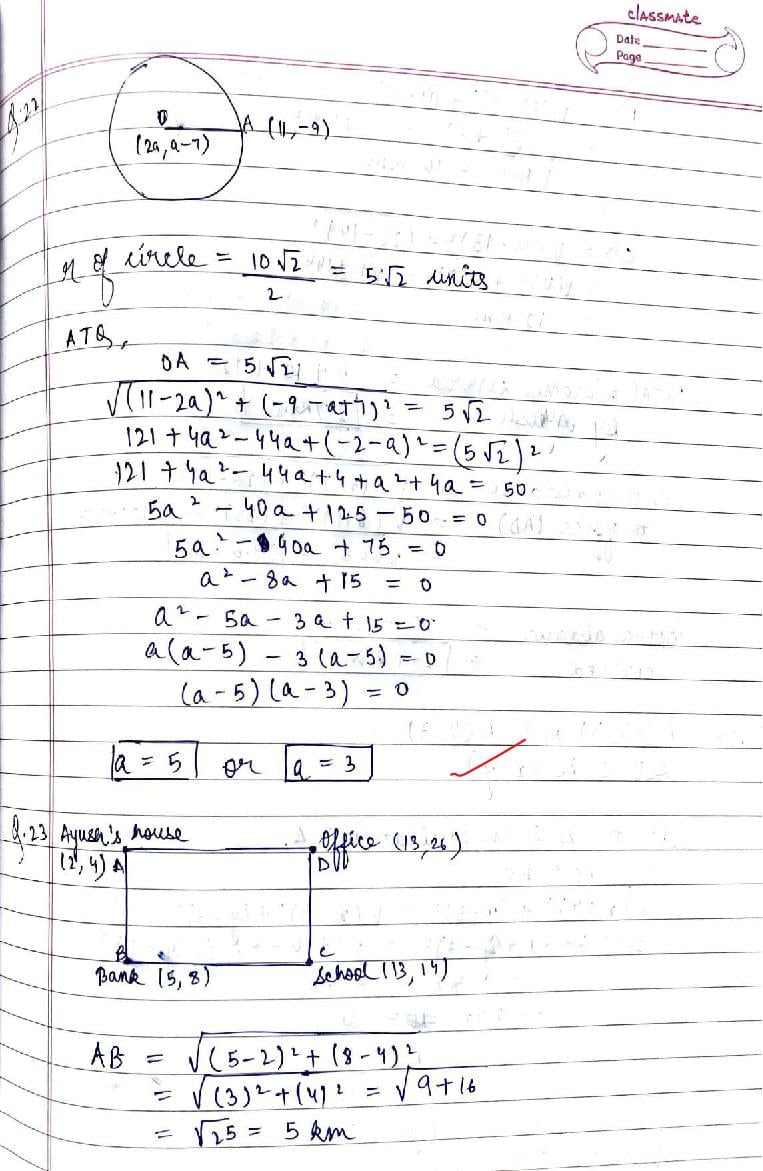 classmate
Date
Page
Q.22
O
(2a, a-7)
A (11,-9)
r of circle = 10√2/2 = 5√2 units
ATQ,
OA = 5√2
√(11-2a)² + (-9-a+7)² = 5√2
121 + 4a² - 44a + (-2-a)² = (5√2)²
121 + 4a² - 44a + 4 + a² + 4a = 50
5a² - 40a + 125 - 50 = 0
5a² - 40a + 75 = 0
a² - 8a + 15 = 0
a² - 5a - 3a + 15 = 0
a(a-5) - 3(a-5) = 0
(a-5)(a-3) = 0
a = 5 or a = 3
Q.23 Ayush's house Office (13,26)
(2,4) A D
B C
Bank (5,8) School (13,14)
AB = √(5-2)² + (8-4)²
= √(3)² + (4)² = √9+16
= √25 = 5 km